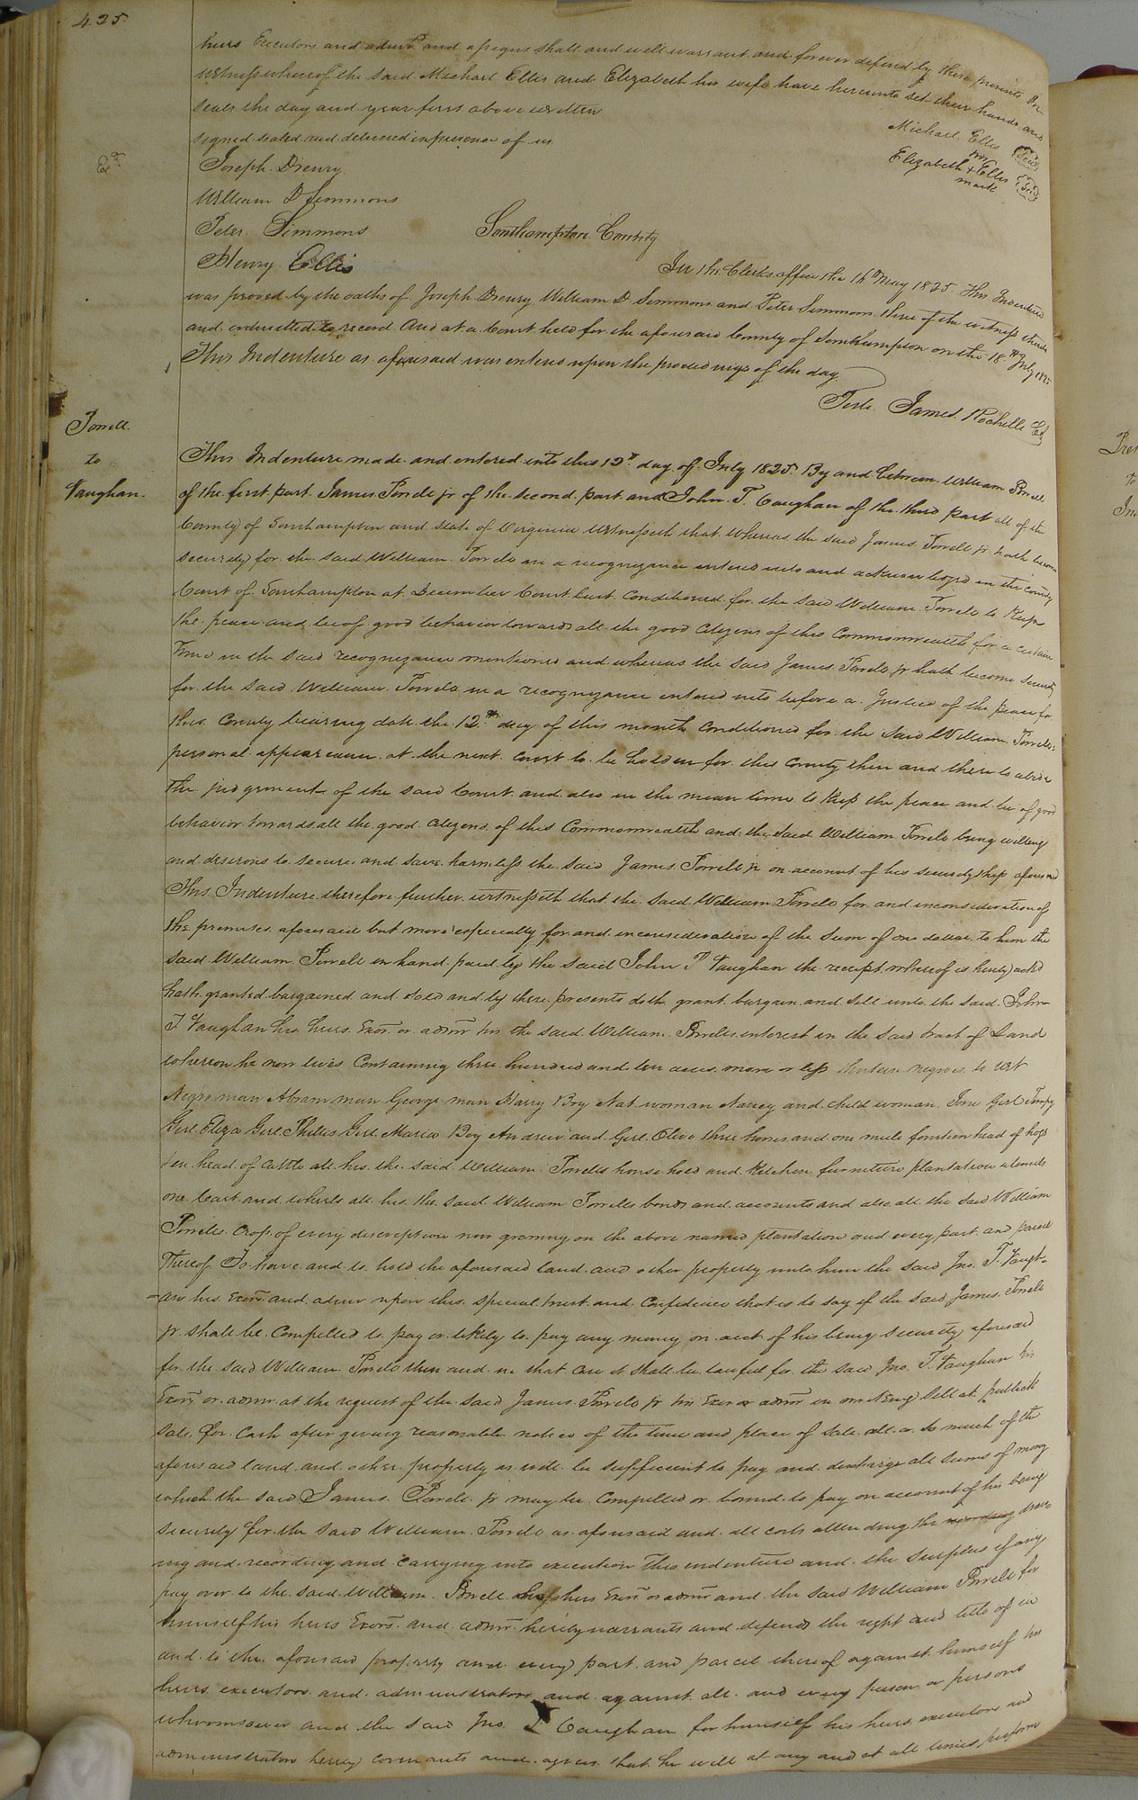 425
heirs Executors and admrs and assigns shall and will warrant and forever defend by these presents In
witness whereof the said Michael Ellis and Elizabeth his wife have hereunto set their hands and
seals the day and year first above written
signed sealed and delivered in presence of us
Michael Ellis (Seal)
Elizabeth + Ellis (Seal)
mark
Joseph Drewry
William D Simmons
Peter Simmons
Henry Ellis
Southampton County
In the Clerks office the 16th May 1825 This Indenture
was proved by the oaths of Joseph Drewry William D Simmons and Peter Simmons three of the witness thereto
and admitted to record And at a Court held for the aforesaid County of Southampton on the 18th July 1825
This Indenture as aforesaid was entered upon the proceedings of the day
Teste James Rochelle
to
Vaughan
This Indenture made and entered into this 12th day of July 1825 By and between William
of the first part James jr of the second part and John T. Vaughan of the third part all of the
County of Southampton and State of Virginia Witnesseth that whereas the said James jr hath become
security for the said William in a recognizance entered into and acknowledged in the county
Court of Southampton at December Court last Conditioned for the said William to keep
the peace and be of good behavior towards all the good citizens of this Commonwealth for a certain
time in the said recognizance mentioned and whereas the said James jr hath become security
for the said William in a recognizance entered into before a Justice of the peace for
this County bearing date the 12th day of this month Conditioned for the said William
personal appearance at the next Court to be holden for this County then and there to abide
the judgment of the said Court and also in the mean time to keep the peace and be of good
behavior towards all the good citizens of this Commonwealth and the said William being willing
and desirous to secure and save harmless the said James jr on account of his securityship aforesaid
This Indenture therefore further witnesseth that the said William for and in consideration of
the premises aforesaid but more especially for and in consideration of the sum of one dollar to him the
said William in hand paid by the said John T Vaughan the receipt whereof is hereby ackd
hath granted bargained and sold and by these presents doth grant bargain and sell unto the said John
T Vaughan his heirs Exors or admrs the said William interest in the said tract of Land
whereon he now lives Containing three hundred and ten acres more or less thirteen negroes to wit
Negro man Abram man George man Harry Boy Nat woman Nancy and child woman Girl Tempy
Girl Eliza Girl Phillis Girl Maria Boy Andrew and Girl Olive three horses and one mule fourteen head of hogs
ten head of Cattle all his the said William household and Kitchen furniture plantation utensils
one Cart and wheels all his the said William bonds and accounts and also all the said William
Crop of every description now growing on the above named plantation and every part and parcel
thereof To have and to hold the aforesaid land and other property unto him the said Jno. T. Vaugh-
-an his Exors and admrs upon this special trust and Confidence that is to say if the said James
jr shall be Compelled to pay or likely to pay any money on acct of his being security aforesaid
for the said William then and in that case it shall be lawful for the said Jno. T. Vaughan his
Exors or admrs at the request of the said James jr his Exor or admr in writing sell at publick
sale for Cash after giving reasonable notice of the time and place of sale all or so much of the
aforesaid land and other property as will be sufficient to pay and discharge all sums of money
which the said James jr may be Compelled or bound to pay on account of his being
security for the said William as aforesaid and all costs attending the draw
ing and recording and carrying into execution this indenture and the surplus if any
pay over to the said William his heirs Exors or admrs and the said William for
himself his heirs Exors and admrs hereby warrants and defends the right and title of in
and to the aforesaid property and every part and parcel thereof against himself his
heirs executors and administrators and against all and every person or persons
whomsoever and the said Jno. T Vaughan for himself his heirs executors and
administrators hereby covenants and agrees that he will at any and at all times perform